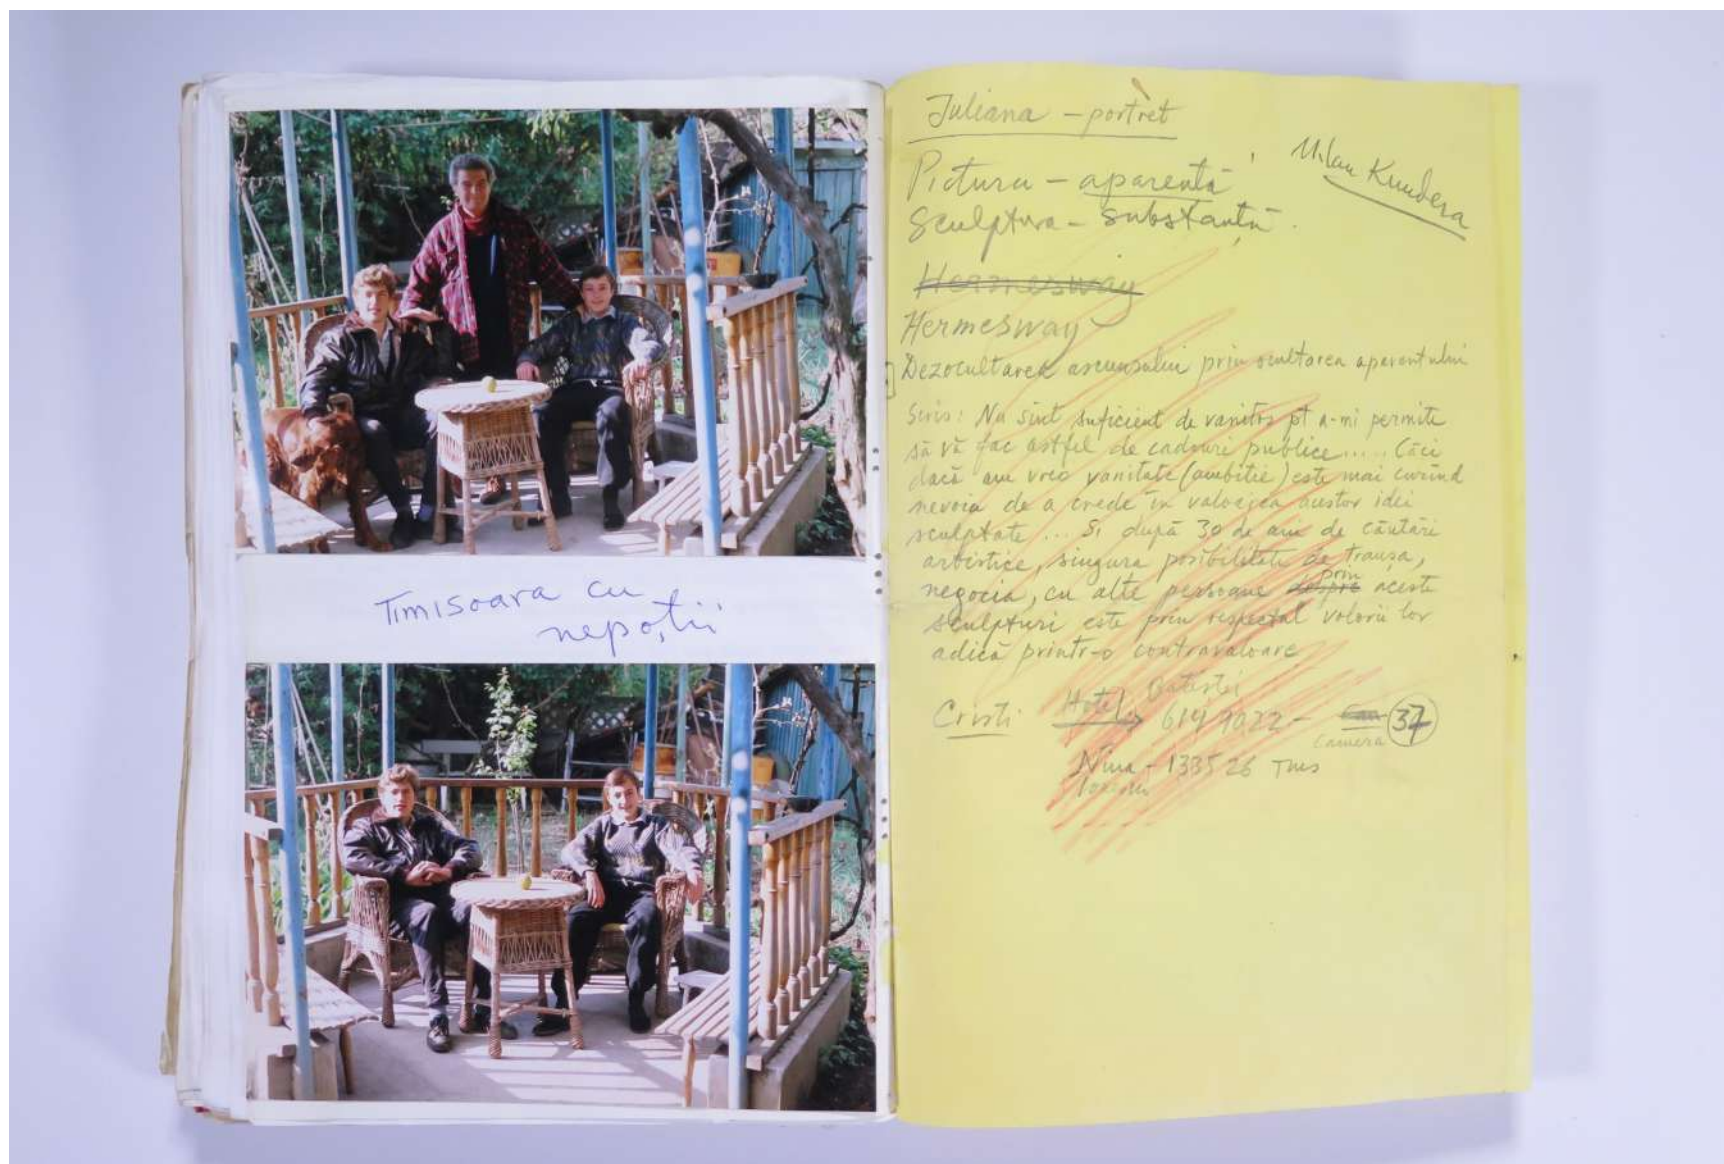 Timisoara cu
nepoții
Iuliana - portret
Milan Kundera
Pictura - aparență
Sculptura - substanță.
Hermesway
Hermesway
Dezocultarea ascunsului prin ocultarea aparentului
Scris: Nu sint suficient de vanitos pt a-mi permite
să vă fac astfel de cadouri publice..... Căci
dacă am vreo vanitate (ambitie) este mai curînd
nevoia de a crede în valoarea acestor idei
sculptate ... Si după 30 de ani de căutări
artistice, singura posibilitate de transa,
negocia, cu alte persoane despre prin aceste
sculpturi este prin respectul valorii lor
adică printr-o contravaloare
Cristi Hotel Batistei
619 9022 - 37
Camera
Nina - 133526 Tms